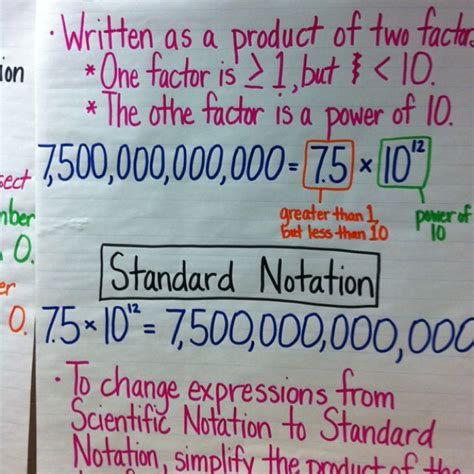 · Written as a product of two factors
* One factor is ≥ 1, but & < 10.
* The othe factor is a power of 10.
7,500,000,000,000 = 7.5 × 10¹²
greater than 1,
but less than 10
power of
10
Standard Notation
7.5 × 10¹² = 7,500,000,000,000
· To change expressions from
Scientific Notation to Standard
Notation, simplify the product of the
ion
sect
mber
0.
er
0.